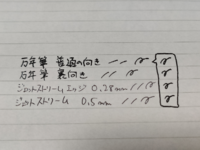 万年筆 普通の向き
万年筆 裏向き
ジェットストリーム エッジ 0.28mm
ジェットストリーム 0.5mm